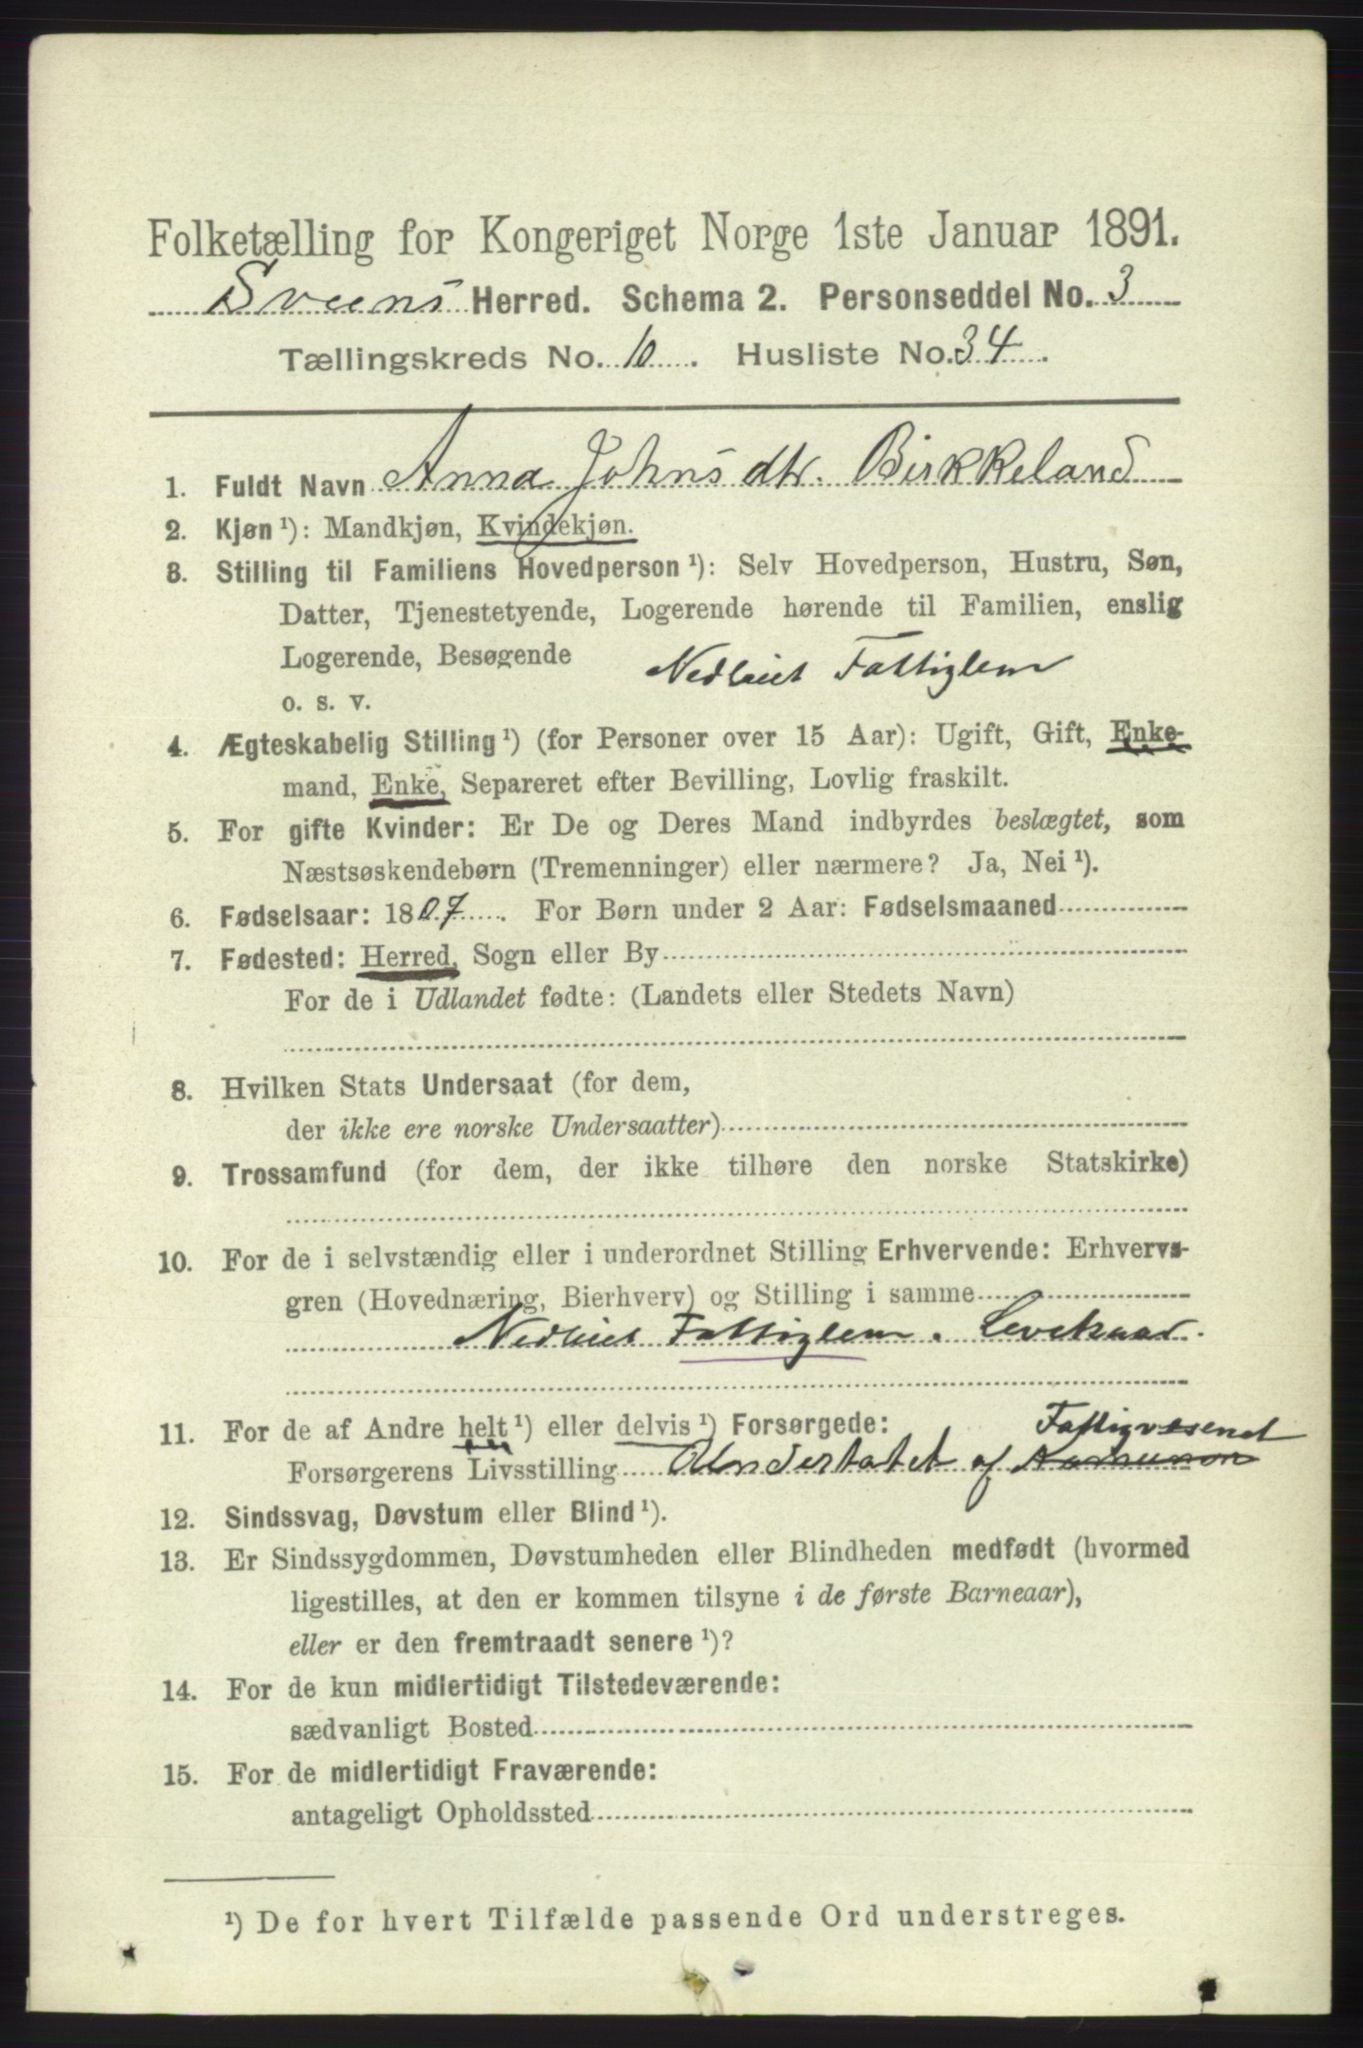 Folketælling for Kongeriget Norge 1ste Januar 1891.
Sveens Herred. Schema 2. Personseddel No. 3
Tællingskreds No. 10. Husliste No. 34.
1. Fuldt Navn Anna Johns dtr. Birkkeland
2. Kjøn ¹): Mandkjøn, Kvindekjøn.
3. Stilling til Familiens Hovedperson ¹): Selv Hovedperson, Hustru, Søn,
Datter, Tjenestetyende, Logerende hørende til Familien, enslig
Logerende, Besøgende Nedlaiet Fattiglem
o. s. v.
4. Ægteskabelig Stilling ¹) (for Personer over 15 Aar): Ugift, Gift, Enke-
mand, Enke, Separeret efter Bevilling, Lovlig fraskilt.
5. For gifte Kvinder: Er De og Deres Mand indbyrdes beslægtet, som
Næstsøskendebørn (Tremenninger) eller nærmere? Ja, Nei ¹).
6. Fødselsaar: 1807. For Børn under 2 Aar: Fødselsmaaned
7. Fødested: Herred, Sogn eller By
For de i Udlandet fødte: (Landets eller Stedets Navn)
8. Hvilken Stats Undersaat (for dem,
der ikke ere norske Undersaatter)
9. Trossamfund (for dem, der ikke tilhøre den norske Statskirke)
10. For de i selvstændig eller i underordnet Stilling Erhvervende: Erhvervs-
gren (Hovednæring, Bierhverv) og Stilling i samme
Nedlaiet Fattiglem. Levekaar.
11. For de af Andre helt ¹) eller delvis ¹) Forsørgede: Fattigvesenet
Forsørgerens Livsstilling Understøtet af Kommunen
12. Sindssvag, Døvstum eller Blind ¹).
13. Er Sindssygdommen, Døvstumheden eller Blindheden medfødt (hvormed
ligestilles, at den er kommen tilsyne i de første Barneaar),
eller er den fremtraadt senere ¹)?
14. For de kun midlertidigt Tilstedeværende:
sædvanligt Bosted
15. For de midlertidigt Fraværende:
antageligt Opholdssted
¹) De for hvert Tilfælde passende Ord understreges.